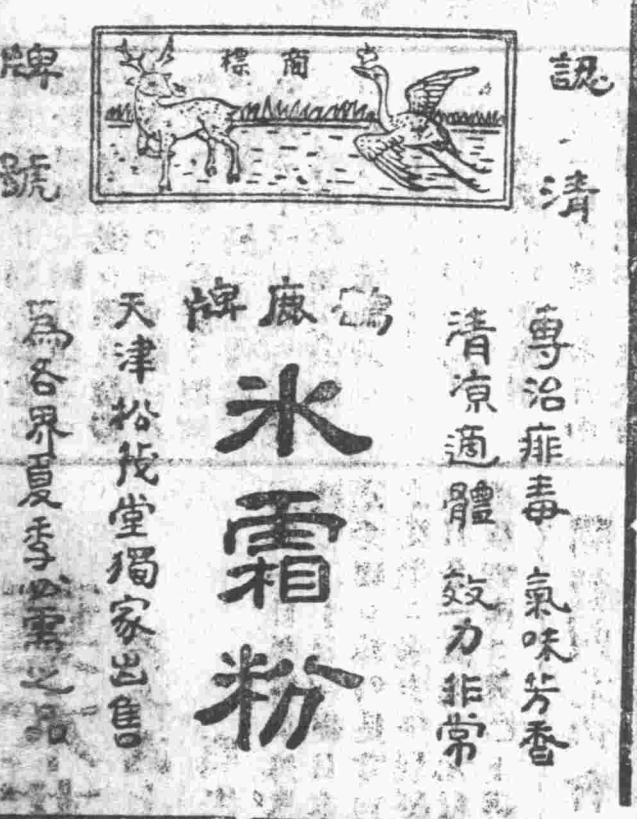 認清
商標
牌號
專治痱毒 氣味芳香
清凉適體 效力非常
鶴鹿牌
氷霜粉
天津松茂堂獨家出售
為各界夏季必需之品